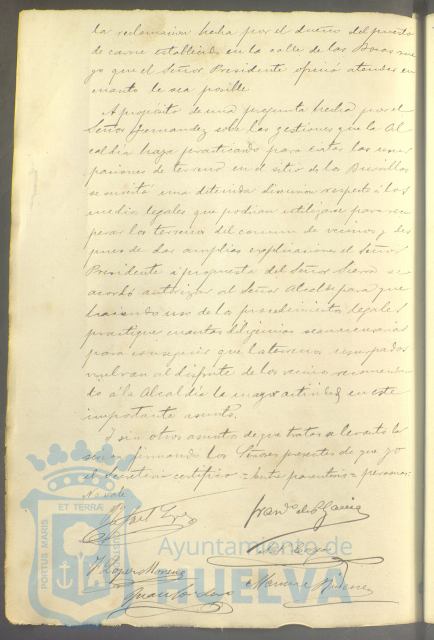 la reclamacion hecha por el dueño del puesto
de carne establecido en la calle de las Bocas rue
go que el Señor Presidente opinó atender en
cuanto le sea posible
A propósito de una pregunta hecha por el
Señor Fernandez sobre las gestiones que la Al
caldia haya practicado para evitar las usur
paciones de terreno en el sitio de las
se suscitó una detenida discusion respecto á los
medios legales que podian utilizarse para recu
perar los terrenos del comun de vecinos y des
pues de dar amplias explicaciones el Señor
Presidente á propuesta del Señor se
acordó autorizar al Señor Alcalde para que
haciendo uso de los procedimientos legales
practique cuantas diligencias sean necesarias
para conseguir que los terrenos usurpados
vuelvan al disfrute de los vecinos recomendan
do á la Alcaldia la mayor actividad en este
importante asunto.
Y sin otros asuntos de que tratar se levantó la
sesion firmando los Señores presentes de que yo
el Secretario certifico = entre parentesis = personas:
No vale
Rafael
Franco de P. Garcia
J. Lopez Moreno
Juan Cordero
Manuel
PORTUS MARIS ET TERRAE CUSTODIA
Ayuntamiento de
HUELVA